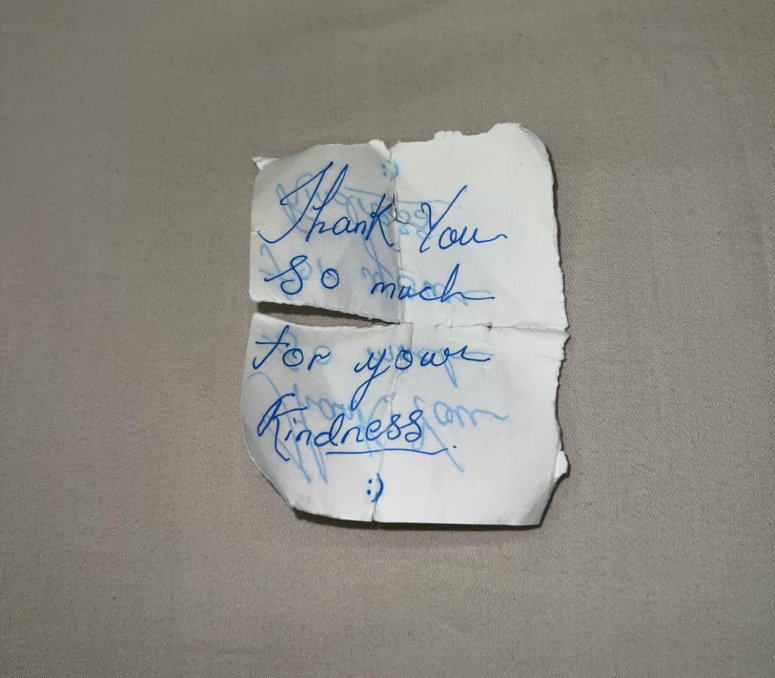 Thank You
so much
for your
Kindness.
:)